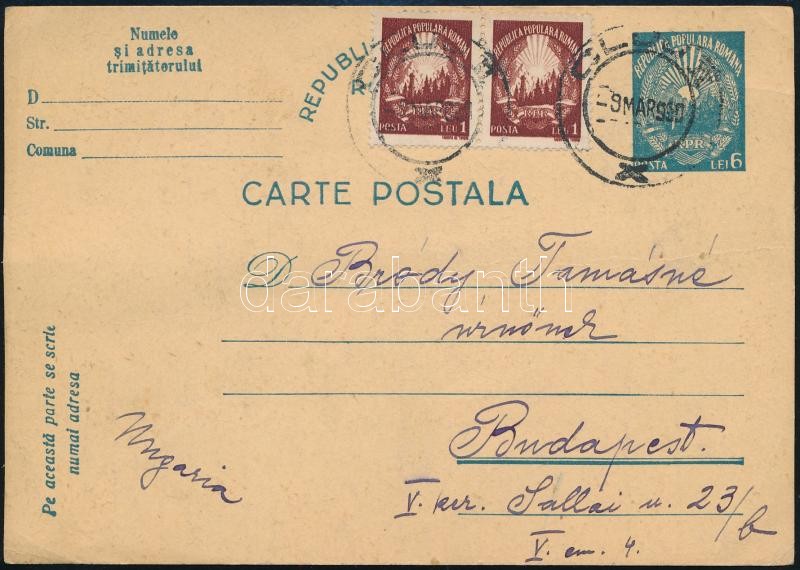 Numele
și adresa
trimițătorului
D
Str.
Comuna
REPUBLI
REPUBLICA POPULARA ROMANA
RPR
POSTA LEU 1
REPUBLICA POPULARA ROMANA
RPR
POSTA LEU 1
9 MAR 950
REPUBLICA POPULARA ROMANA
RPR
POSTA LEI 6
CARTE POSTALA
D Bródy Tamásné
úrnőnek
darabanth
Budapest.
V. ker. Sallai u. 23/b
V. em. 4.
Ungaria
Pe această parte se scrie
numai adresa